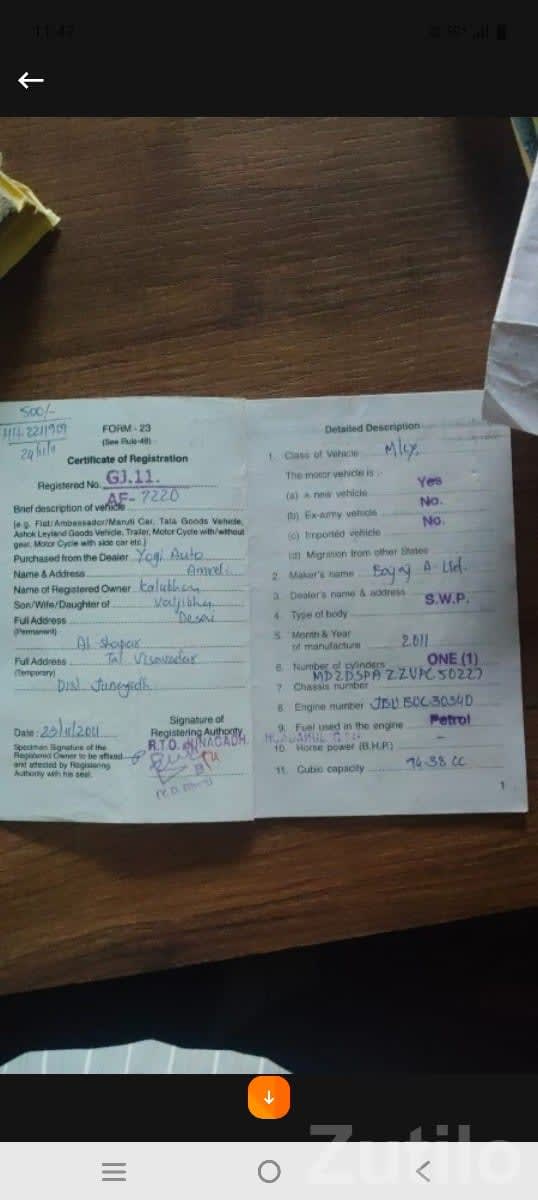 11:47
500/-
24/11/11
FORM - 23
(See Rule-48)
Certificate of Registration
Registered No. GJ.11.
AF-7220
Brief description of vehicle
[e.g. Fiat/Ambassador/Maruti Car, Tata Goods Vehicle,
Ashok Leyland Goods Vehicle, Trailer, Motor Cycle with/without
gear, Motor Cycle with side car etc.]
Purchased from the Dealer Yogi Auto
Name & Address Amreli
Name of Registered Owner Kalubhai
Son/Wife/Daughter of Valjibhai
Full Address Desai
(Permanent)
At Shapar
Full Address Tal Visavadar
(Temporary)
Dist Junagadh
Date : 23/11/2011
Signature of
Registering Authority
R.T.O. JUNAGADH.
Specimen Signature of the
Registered Owner to be affixed
and attested by Registering
Authority with his seal.
Detailed Description
1. Class of Vehicle M/cy.
The motor vehicle is :-
(a) a new vehicle Yes
(b) Ex-army vehicle No.
(c) Imported vehicle No.
(d) Migration from other States
2. Maker's name Bajaj A. Ltd.
3. Dealer's name & address
4. Type of body S.W.P.
5. Month & Year
of manufacture 2011
6. Number of cylinders ONE (1)
7. Chassis number
8. Engine number
9. Fuel used in the engine Petrol
10. Horse power (B.H.P.) -
11. Cubic capacity 94.38 CC
1
Zutilo